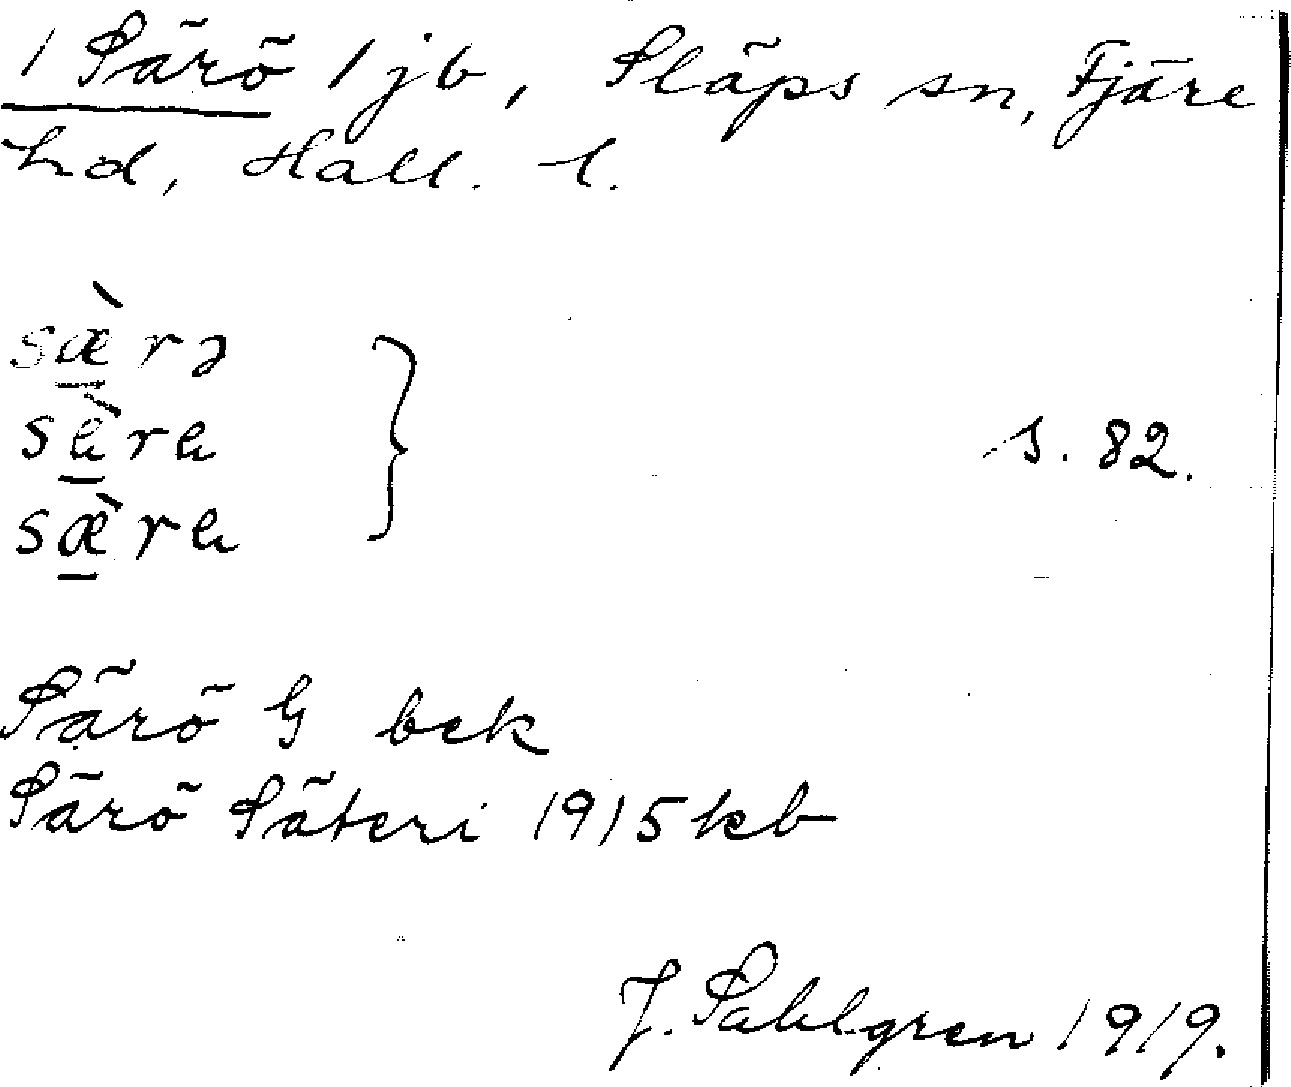 1 Särö 1 jb, Släps sn, Fjäre
hd, Hall. l.
sæ̀rə
sàra
s. 82.
sæ̀ra
Särö G bek
Särö Säteri 1915 kb
J. Sahlgren 1919.